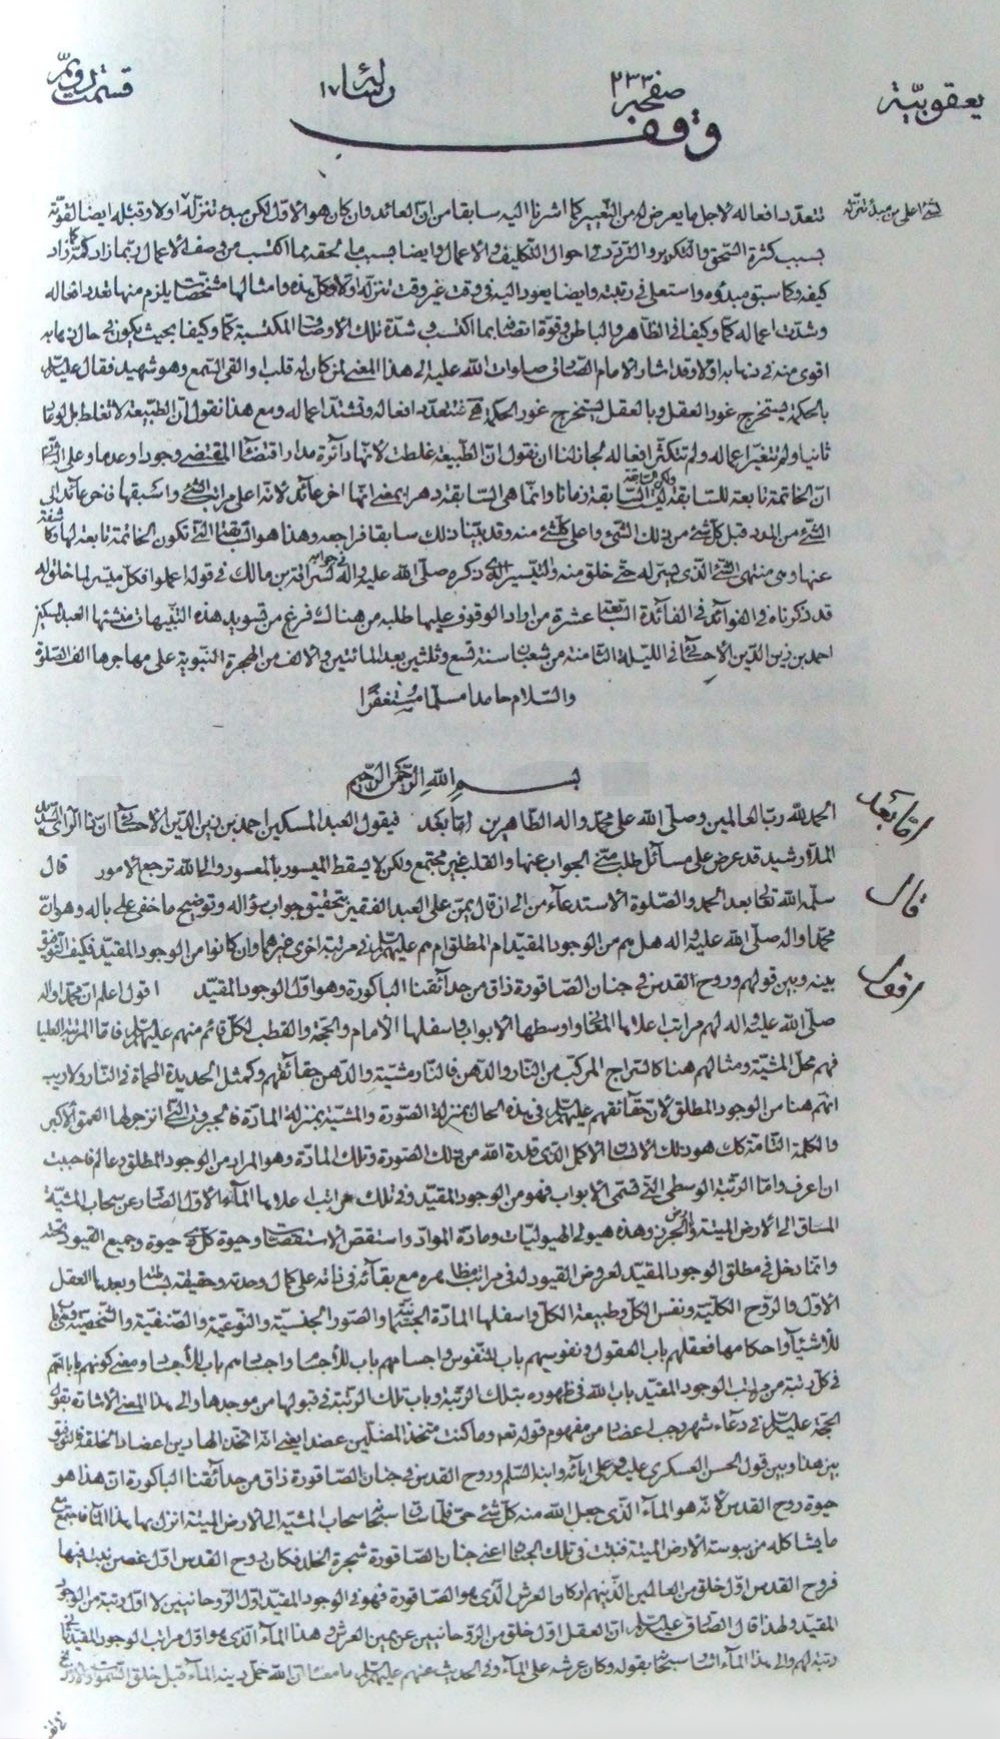 يعقوبيّة
صفحه ٢٣٣
رسالة ١٧
قسمت دويّم
وقف
تتعدد افعاله لاجل ما يعرض له من التغيير كما اشرنا اليه سابقا من ان العائد وان كان هو الاول لكن مبدء تنزله اولا وقبله ايضا لقوته
بسبب كثرة السحق والتكرير والتردد في احوال التكليف والاعمال وايضا بسبب ما يلحقه مما اكتسب من وصف الاعمال ربما زاد كمه كما زاد
كيفه وكما سبق مبدؤه واستعلى في رتبته وايضا يعود اليه في وقت غير وقت تنزله اولا وكل هذه وامثالها مشخصات يلزم منها تعدد افعاله
وشدت اعماله كما وكيفا في الظاهر والباطن وقوة اتصافه بما اكتسب وشدة تلك الاوصاف المكتسبة كما وكيفا بحيث يكون في حال ذهابه
اقوى منه في ذهابه اولا وقد اشار الامام الصادق صلوات الله عليه الى هذا المعنى لمن كان له قلب او القى السمع وهو شهيد فقال عليه السلام
بالحكمة يستخرج غور العقل وبالعقل يستخرج غور الحكمة فتتعدد افعاله وتشتد اعماله ومع هذا نقول ان الطبيعة لا تغلط بل لو عاد
ثانيا ولم تتغير اعماله ولم تتكثر افعاله لجاز لنا ان نقول ان الطبيعة غلطت لانها دائرة مدار اقتضاء المقتضي وجودا وعدما وعلى
ان الخاتمة تابعة للسابقة ولكن السابقة ليست السابقة زمانا وانما هي السابقة دهرا بمعنى انها اخر عائد لانه اعلى مراتب الشيء واسبقها فاخر عائد الى
الشيء من المدد قبل كل شيء من ذلك الشيء واعلى كل شيء منه وقد بينا ذلك سابقا فراجعه وهذا هو السابقة التي تكون الخاتمة تابعة لها وكاشفة
عنها وهي منتهى الشيء الذي ييسر له حتى خلق منه والتيسير الذي ذكره صلى الله عليه واله في جوابه لسراقة بن مالك في قوله اعملوا فكل ميسر لما خلق له
قد ذكرناه في الفوائد في الفائدة الرابعة عشرة من اراد الوقوف عليها طلبه من هناك فرغ من تسويد هذه التنبيهات منشئها العبد المسكين
احمد بن زين الدين الاحسائي في الليلة الثامنة من شعبان سنة تسع وثلثين بعد المائتين والالف من الهجرة النبوية على مهاجرها الف الصلوة
والسلام حامدا مسلما مستغفرا
بسم الله الرحمن الرحيم
الحمد لله رب العالمين وصلى الله على محمد واله الطاهرين اما بعد فيقول العبد المسكين احمد بن زين الدين الاحسائي ان
اما بعد
الملا رشيد قد عرض علي مسائل طلب مني الجواب عنها والقلب غير مجتمع ولكن لا يسقط الميسور بالمعسور والى الله ترجع الامور قال
قال
سلمه الله تعالى بعد الحمد والصلوة الاستدعاء من الى ان قال يمن على العبد الفقير بتحقيق جواب سؤاله وتوضيح ما خفي على باله وهو ان
محمدا واله صلى الله عليه واله هل هم من الوجود المقيد ام المطلق ام هم عليهم السلام في مرتبة اخرى غيرهما وان كانوا من الوجود المقيد فكيف التوفيق
بينه وبين قولهم وروح القدس في جنان الصاقورة ذاق من حدائقنا الباكورة وهو اول الوجود المقيد اقول اعلم ان محمدا واله
اقول
صلى الله عليه واله لهم مراتب اعلاها المعاني واوسطها الابواب واسفلها الامام والحجة والقطب لكل قائم منهم عليهم السلام فاما المرتبة العليا
فهم محل المشيّة ومثالهم هنا كالسراج المركب من النار والدهن فالنار مشية والدهن حقائقهم وكمثل الحديدة المحماة في النار ولا ريب
انهم هنا من الوجود المطلق لان حقائقهم عليهم السلام في هذه الحال بمنزلة الصورة والمشية بمنزلة المادة فالجبروت التي انزجر لها العمق الاكبر
والكلمة التامة كن هو ذلك الانسان الاكمل الذي قدره الله من تلك الصورة وتلك المادة وهو المراد من الوجود المطلق وعالم فاحببت
ان اعرف واما الرتبة الوسطى التي فتسمى الابواب فهو من الوجود المقيد وفي تلك مراتب اعلاها الماء الاول الصادر عن سحاب المشية
المساق الى الارض الميتة وارض الجرز وهذه هيولى الهيوليات ومادة المواد واستقص الاستقصات وحيوة كل حيوة وجميع القيود تحته
وانما دخل في مطلق الوجود المقيد لعروض القيود له في مراتب مظاهره مع بقائه في ذاته على كمال وحدته وحقيقة بساطته وبعدها العقل
الاول والروح الكلية ونفس الكل وطبيعة الكل واسفلها المادة الجسمانية والصور الجنسية والنوعية والصنفية والشخصية
للاشياء واحكامها فعقلهم باب العقول ونفوسهم باب النفوس واجسامهم باب للاجسام واجسادهم باب للاجساد ومعنى كونهم بابا انهم
في كل رتبة من مراتب الوجود المقيد باب الله في ظهوره بتلك الرتبة وباب تلك الرتبة في قبولها من موجدها والى هذا المعنى الاشارة بقول
الحجة عليه السلام في دعاء شهر رجب اعضاد من مفهوم قوله تعالى وما كنت متخذ المضلين عضدا يعني انه اتخذ الهادين اعضادا لخلقه والتوفيق
بين هذا وبين قول الحسن العسكري عليه وعلى ابائه وابنه السلم وروح القدس في جنان الصاقورة ذاق من حدائقنا الباكورة ان هذا هو
حيوة روح القدس لانه هو الماء الذي جعل الله منه كل شيء حي فلما ساق سبحانه سحاب المشية الى الارض الميتة انزل بها هذا الماء فاجتمع مع
ما يشاكله من يبوسة الارض الميتة فنبتت في تلك الجنان اعني جنان الصاقورة شجرة الخلد فكان روح القدس اول غصن نبت فيها
فروح القدس اول خلق من العالمين الذين هم اركان العرش الذي هو الصاقورة فهو في الوجود المقيد اول الروحانيين لا اول رتبة من الوجود
المقيد ولهذا قال الصادق عليه السلام ان العقل اول خلق من الروحانيين عن يمين العرش وهذا الماء الذي هو اول مراتب الوجود المقيد ثاني
رتبة لهم والى هذا الماء اشار سبحانه بقوله وكان عرشه على الماء وفي الحديث عنهم عليهم السلام ما معناه ان الله حمل دينه الماء قبل خلق السموات والارض